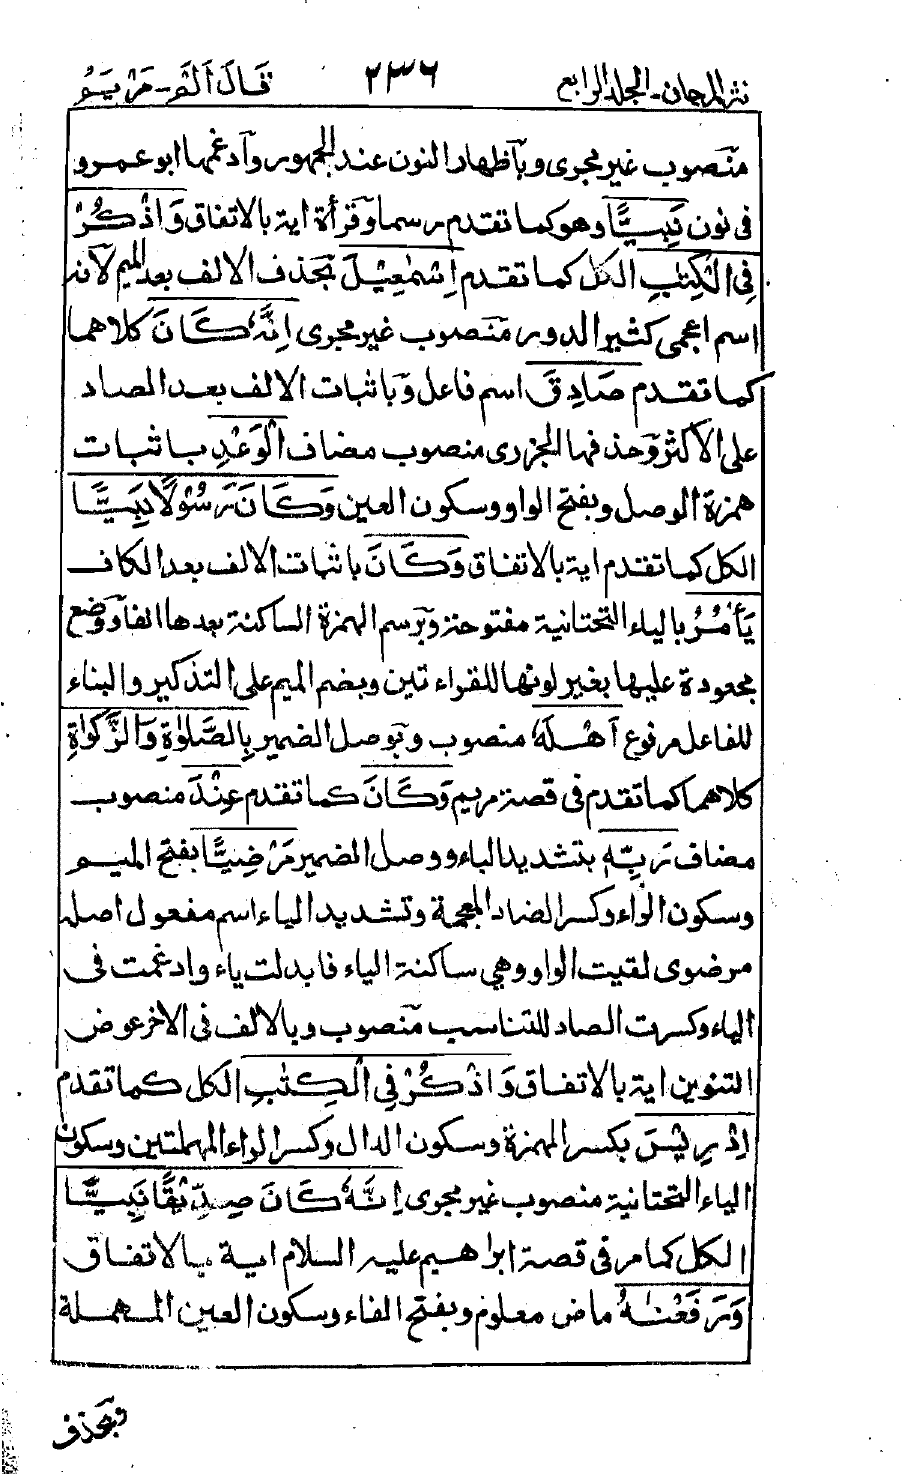 نثر المرجان - الجلد الرابع ٢٣٦ قَالَ اَلَمْ - مَرْيَمُ
منصوب غير مجرى وبأظهار النون عند الجمهور وادغمها ابو عمرو
فى نون نَبِيًّا وهو كما تقدم رسما وقرأة اية بالاتفاق وَاذْكُرْ
فِى الْكِتٰبِ الكل كما تقدم اِسْمٰعِيْلَ بحذف الالف بعد الميم لانه
اسم اعجمى كثير الدور منصوب غير مجرى اِنَّهٗ كَانَ كلاهما
كما تقدم صَادِقَ اسم فاعل وباثبات الالف بعد الصاد
على الاكثر وحذفها الجزرى منصوب مضاف الْوَعْدِ باثبات
همزة الوصل وبفتح الواو وسكون العين وَكَانَ رَسُوْلًا نَبِيًّا
الكل كما تقدم اية بالاتفاق وَكَانَ باثبات الالف بعد الكاف
يَأْمُرُ بالياء التحتانية مفتوحة وبرسم الهمزة الساكنة بعدها الفا ووضع
مجعودة عليها بغير لونها للقراءتين وبضم الميم على التذكير والبناء
للفاعل مرفوع اَهْلَهٗ منصوب وبوصل الضمير بِالصَّلٰوةِ وَالزَّكٰوةِ
كلاهما كما تقدم فى قصة مريم وَكَانَ كما تقدم عِنْدَ منصوب
مضاف رَبِّهٖ بتشديد الباء ووصل الضمير مَرْضِيًّا بفتح الميم
وسكون الراء وكسر الضاد المعجمة وتشديد الياء اسم مفعول اصله
مرضوى لقيت الواو وهى ساكنة الياء فابدلت ياء وادغمت فى
الياء وكسرت الصاد للتناسب منصوب وبالالف فى الاخر عوض
التنوين اية بالاتفاق وَاذْكُرْ فِى الْكِتٰبِ الكل كما تقدم
اِدْرِيْسَ بكسر الهمزة وسكون الدال وكسر الراء المهملتين وسكون
الياء التحتانية منصوب غير مجرى اِنَّهٗ كَانَ صِدِّيْقًا نَبِيًّا
الكل كما مر فى قصة ابراهيم عليه السلام اية بالاتفاق
وَرَفَعْنٰهُ ماض معلوم وبفتح الفاء وسكون العين المهملة
وبحذف